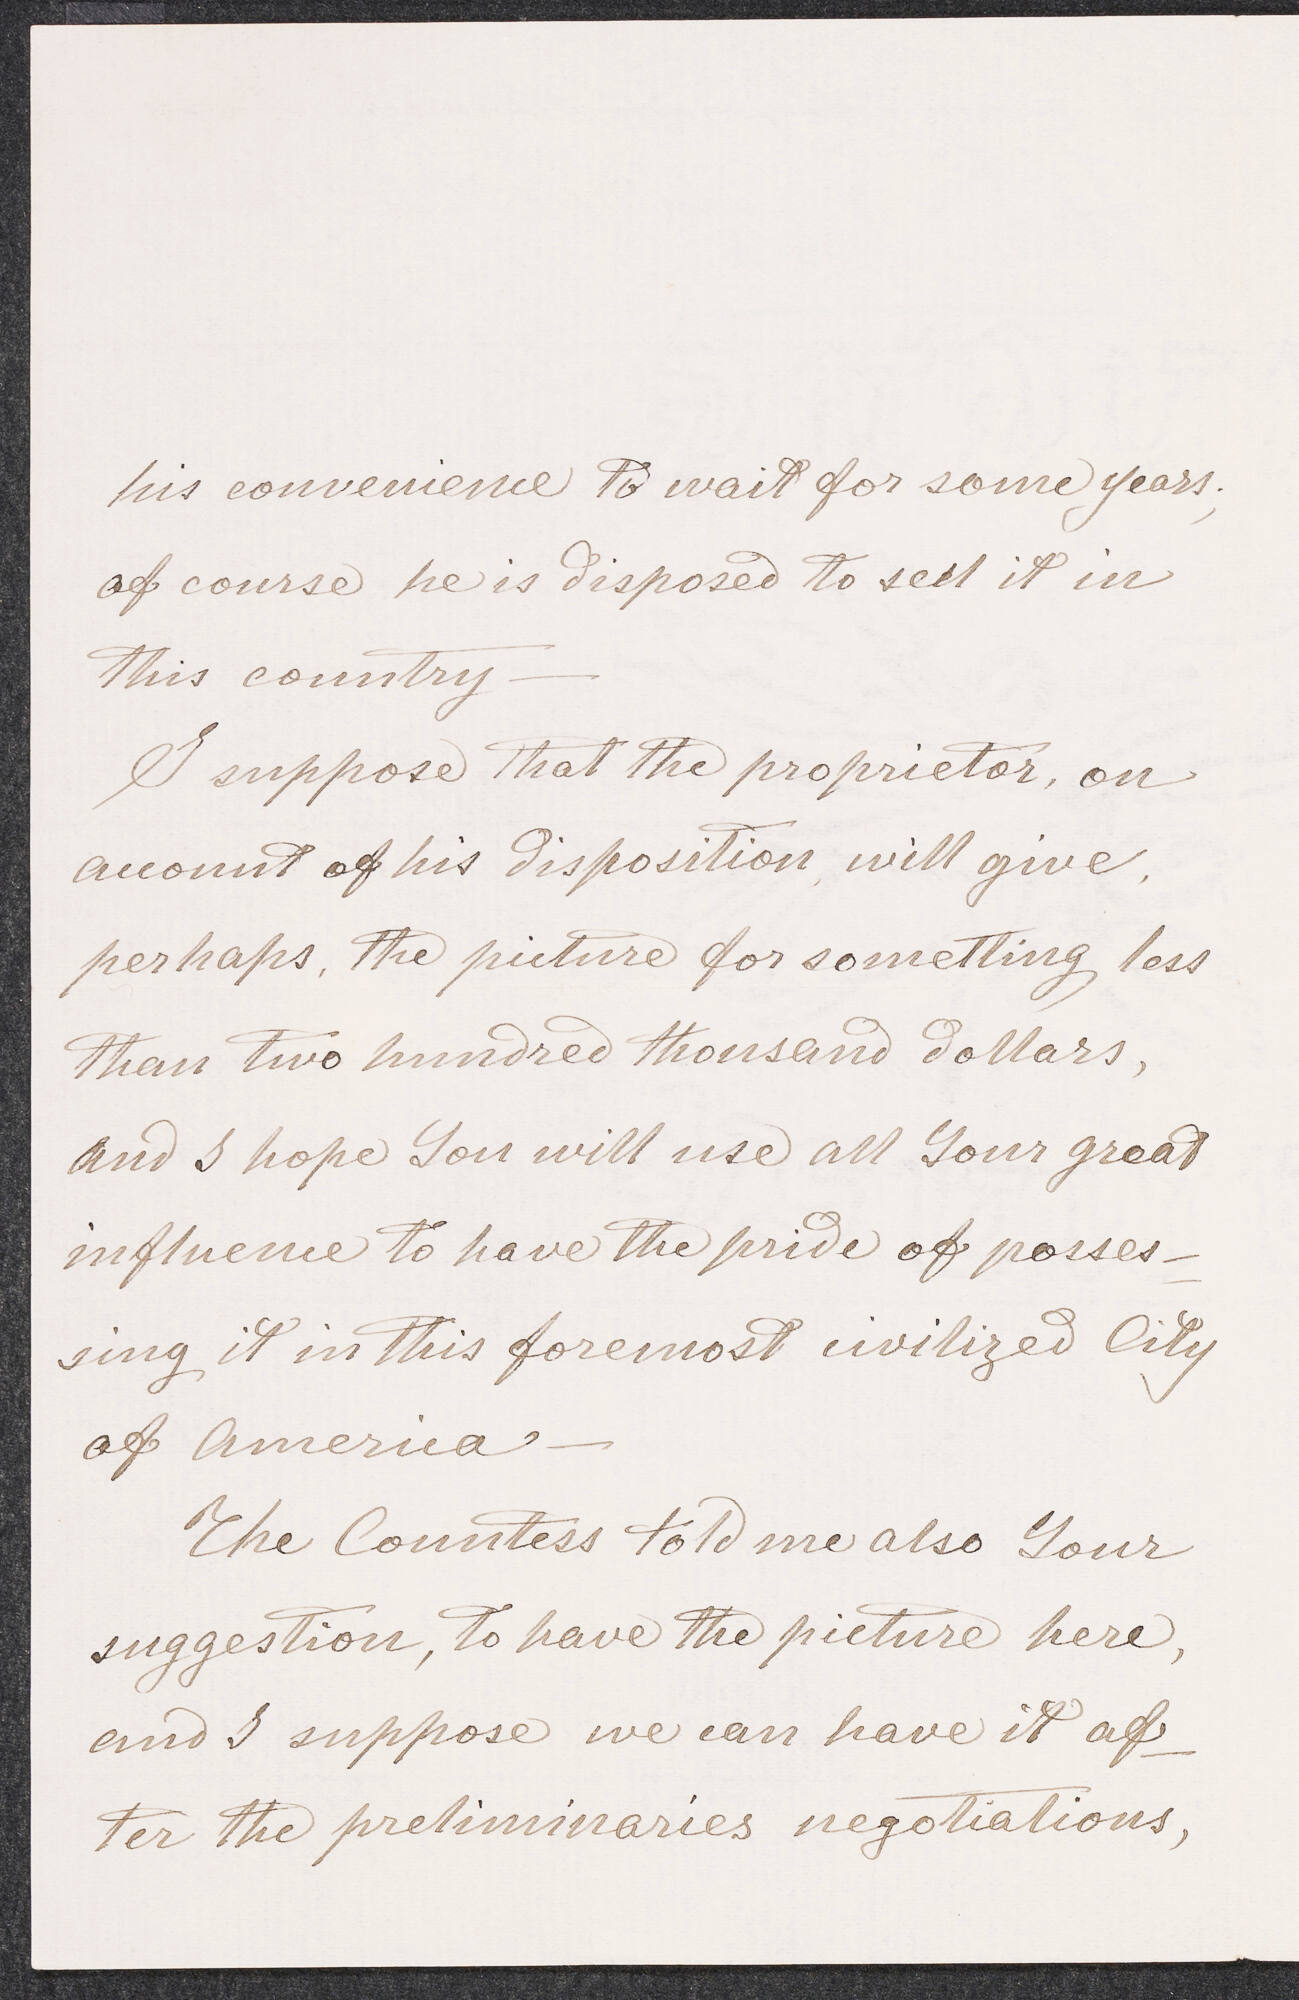 his convenience to wait for some years;
of course he is disposed to sell it in
this country —
I suppose that the proprietor, on
account of his disposition, will give,
perhaps, the picture for sometting less
than two hundred thousand dollars,
and I hope You will use all Your great
influence to have the pride of posses-
sing it in this foremost civilized City
of America —
The Countess told me also Your
suggestion, to have the picture here,
and I suppose we can have it af-
ter the preliminaries negotiations,